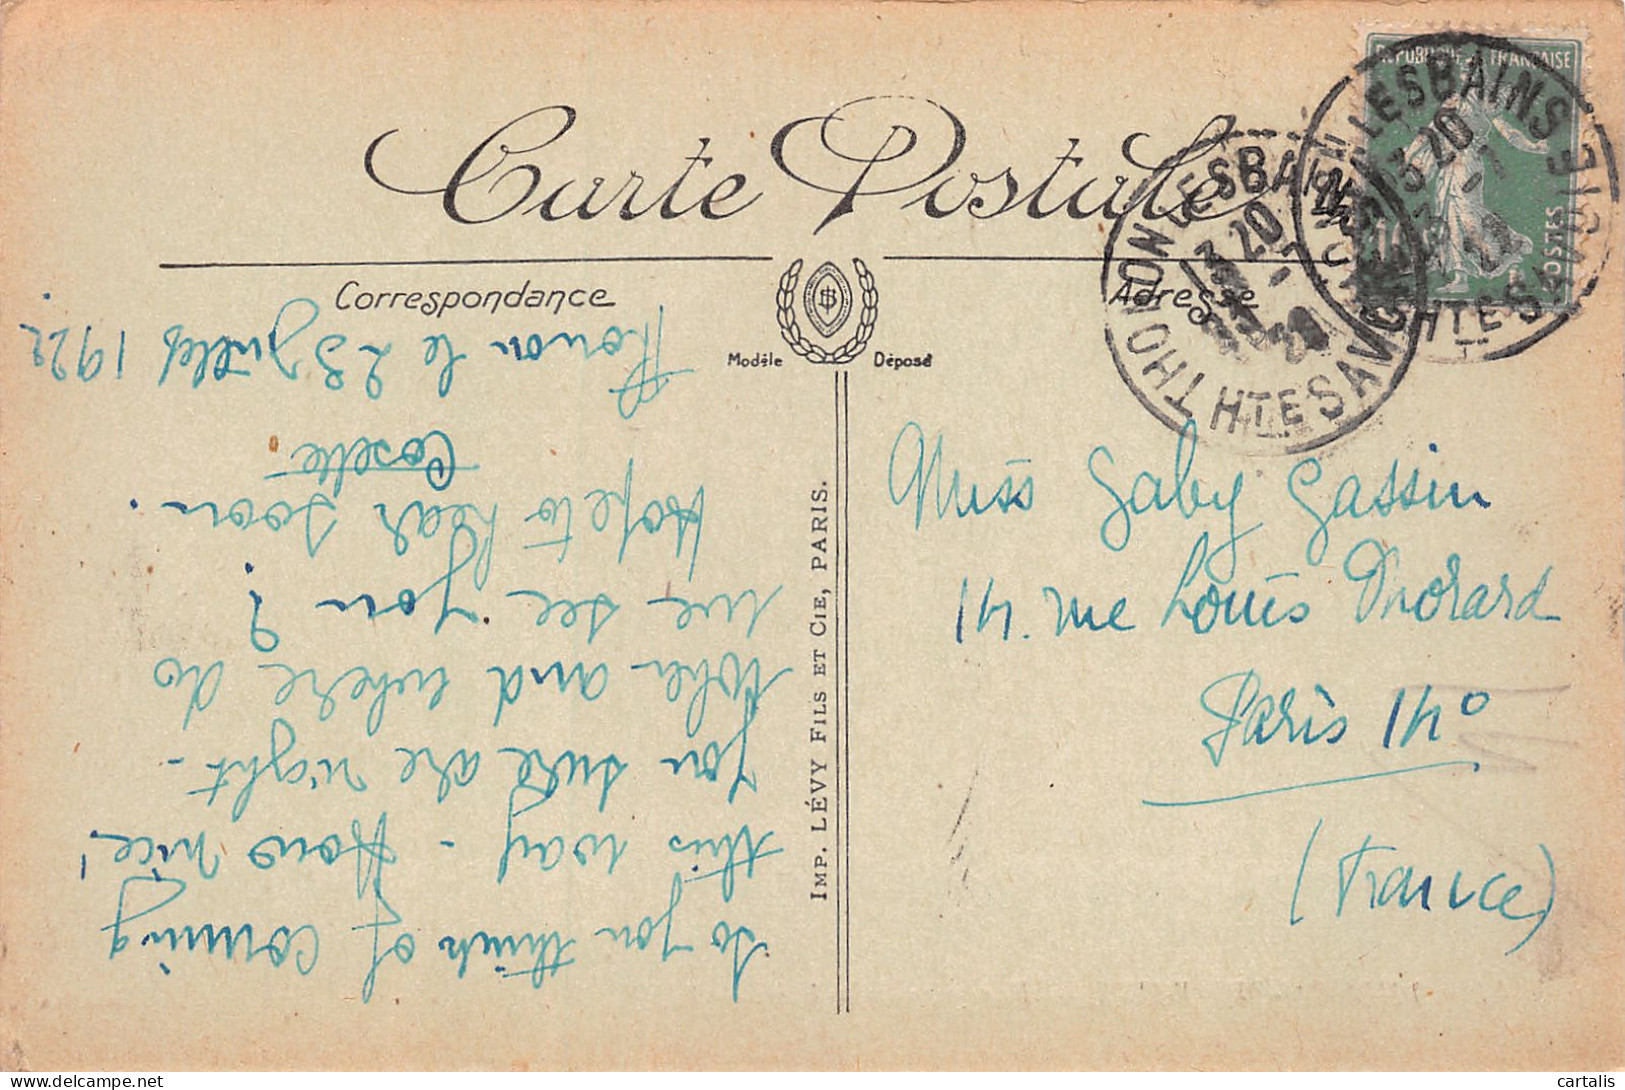 Carte Postale
Correspondance
Adresse
Modèle Déposé
RÉPUBLIQUE FRANÇAISE
POSTES
THONON LES BAINS
13 20
HTE SAVOIE
THONON LES BAINS
13 20
HTE SAVOIE
So you think of coming
this way - How nice!
You sure are right -
When and where do
we see you?
Hope to hear soon.
Cosette
Thonon le 23 Juillet 1922
IMP. LÉVY FILS ET CIE, PARIS.
Miss Gaby Gassin
14. rue Louis Morard
Paris 14º
(France)
cartalis